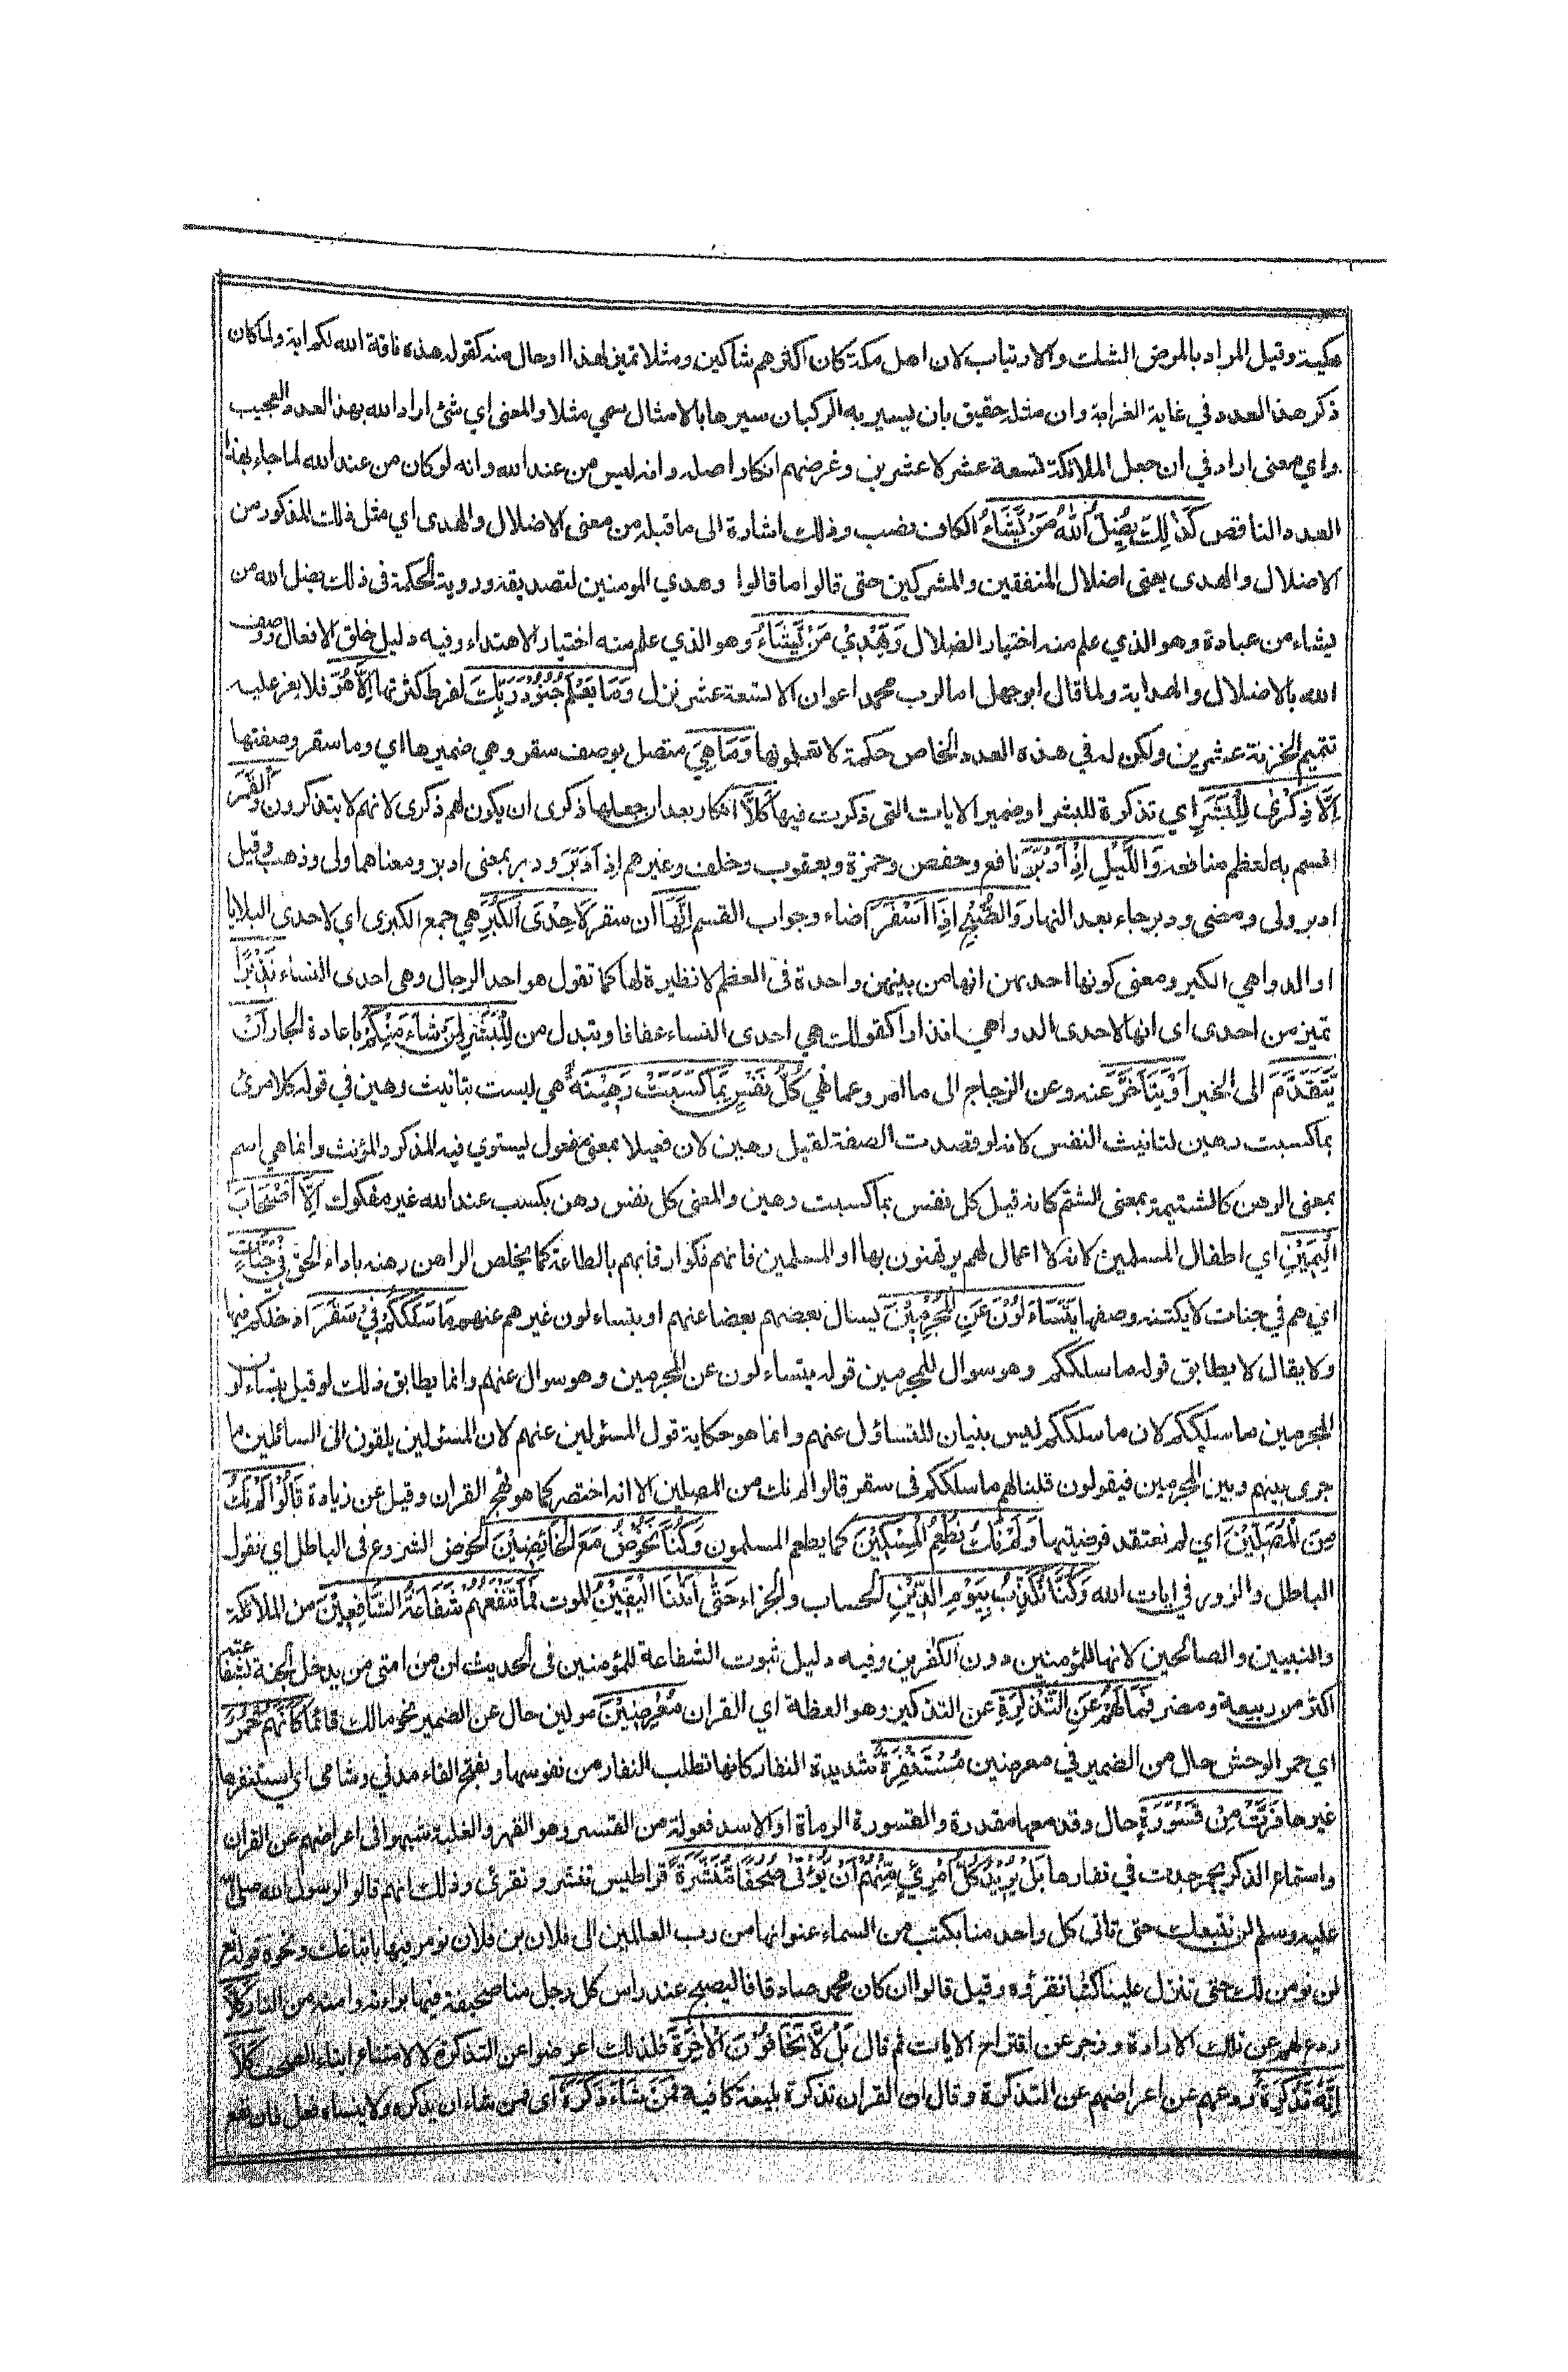 مكية وقيل المراد بالمرض الشك والارتياب لان اهل مكة كان اكثرهم شاكين ومثلا تميز لهذا او حال منه كقوله هذه ناقة الله لكم اية ولما كان
ذكر هذا العدد في غاية الغرابة وان مثله حقيق بان يسير به الركبان سيرها بالامثال سمي مثلا والمعنى اي شئ اراد الله بهذا العدد العجيب
واي معنى اراد في ان جعل الملائكة تسعة عشر لا عشرين وغرضهم انكار اصله وانه ليس من عند الله وانه لو كان من عند الله لما جاء بهذا
العدد الناقص كَذٰلِكَ يُضِلُّ اللّٰهُ مَنْ يَّشَاءُ الكاف نصب وذلك اشارة الى ما قبله من معنى الاضلال والهدى اي مثل ذلك المذكور من
الاضلال والهدى يعنى اضلال المنفقين والمشركين حتى قالوا ما قالوا وهدي المومنين لتصديقه وروية الحكمة فى ذلك يضل الله من
يشاء من عبادة وهو الذي علم منه اختيار الضلال وَيَهْدِيْ مَنْ يَّشَاءُ وهو الذي علم منه اختيار الاهتداء وفيه دليل خلق الافعال ووصف
الله بالاضلال والهداية ولما قال ابو جهل اما لرب محمد اعوان الا تسعة عشر نزل وَمَا يَعْلَمُ جُنُوْدَ رَبِّكَ لفرط كثرتها اِلَّا هُوَ فلا يعز عليه
تتميم الخزنة عشرين ولكن له في هذه العدد الخاص حكمة لا تعلمونها وَمَا هِيَ متصل بوصف سقر وهي ضميرها اي وما سقر وصفتها
اِلَّا ذِكْرٰى لِلْبَشَرِ اي تذكرة للبشر او ضمير الايات التى ذكرت فيها كَلَّا انكار بعد ان جعلها ذكرى ان يكون لهم ذكرى لانهم لا يتذكرون وَالْقَمَرِ
اقسم به لعظم منافعه وَاللَّيْلِ اِذْ اَدْبَرَ نافع وحفص وحمزة ويعقوب وخلف وغيرهم اِذا دَبَرَ ودبر بمعنى ادبر ومعناهما ولى وذهب وقيل
ادبر ولى ومضى ودبر جاء بعد النهار وَالصُّبْحِ اِذَا اَسْفَرَ اضاء وجواب القسم اِنَّهَا ان سقر لَاِحْدَى الْكُبَرِ هي جمع الكبرى اي لاحدى البلايا
او الدواهي الكبر ومعنى كونها احدىهن انها من بينهن واحدة فى العظم لا نظيرة لها كما تقول هو احد الرجال وهى احدى النساء نَذِيْرًا
تميز من احدى اى انها لاحدى الدواهي انذارا كقولك هي احدى النساء عفافا ويبدل من لِلْبَشَرِ لِمَنْ شَاءَ مِنْكُمْ باعادة الجار اَنْ
يَّتَقَدَّمَ الى الخير اَوْ يَتَاَخَّرَ عنه وعن الزجاج الى ما امر وعما نهي كُلُّ نَفْسٍ بِمَا كَسَبَتْ رَهِيْنَةٌ هي ليست بتانيث رهين في قوله كل امرئ
بما كسبت رهين لتانيث النفس لانه لو قصدت الصفة لقيل رهين لان فعيلا بمعنى مفعول يستوي فيه المذكر والمؤنث وانما هي اسم
بمعنى الرهن كالشتيمة بمعنى الشتم كانه قيل كل نفس بما كسبت رهين والمعنى كل نفس رهن بكسب عند الله غير مفكوك اِلَّا اَصْحَابَ
الْيَمِيْنِ اي اطفال المسلمين لانه لا اعمال لهم يرتهنون بها او المسلمين فانهم فكوا رقابهم بالطاعة كما يخلص الراهن رهنه باداء الحق فِيْ جَنَّاتٍ
اي هم في جنات لا يكتنه وصفها يَتَسَاءَلُوْنَ عَنِ الْمُجْرِمِيْنَ يسال بعضهم بعضا عنهم او يتساءلون غيرهم عنهم مَا سَلَكَكُمْ فِيْ سَقَرَ ادخلكم فيها
ولا يقال لا يطابق قوله ما سلككم وهو سوال للمجرمين قوله يتساءلون عن المجرمين وهو سوال عنهم وانما يطابق ذلك لو قيل يتساءلون
المجرمين ما سلككم لان ما سلككم ليس بنيان للتساؤل عنهم وانما هو حكاية قول المسئولين عنهم لان المسئولين يلقون الى السائلين ما
جرى بينهم وبين المجرمين فيقولون قلنا لهم ما سلككم فى سقر قالوا لم نك من المصلين الا انه اختصر كما هو نهج القران وقيل عن زيادة قَالُوْا لَمْ نَكُ
مِنَ الْمُصَلِّيْنَ اي لم نعتقد فرضيتها وَلَمْ نَكُ نُطْعِمُ الْمِسْكِيْنَ كما يطعم المسلمون وَكُنَّا نَخُوْضُ مَعَ الْخَائِضِيْنَ الخوض الشروع فى الباطل اي نقول
الباطل والزور في ايات الله وَكُنَّا نُكَذِّبُ بِيَوْمِ الدِّيْنِ الحساب والجزاء حَتّٰى اَتٰنَا الْيَقِيْنُ الموت فَمَا تَنْفَعُهُمْ شَفَاعَةُ الشَّافِعِيْنَ من الملائكة
والنبيين والصالحين لانها للمؤمنين دون الكفرين وفيه دليل ثبوت الشفاعة للمؤمنين فى الحديث ان من امتى من يدخل الجنة بشفاعته
اكثر من ربيعة ومضر فَمَا لَهُمْ عَنِ التَّذْكِرَةِ عن التذكير وهو العظة اي القران مُعْرِضِيْنَ مولين حال عن الضمير نحو مالك قائما كَاَنَّهُمْ حُمُرٌ
اي حمر الوحش حال من الضمير في معرضين مُسْتَنْفِرَةٌ شديدة النفار كانها تطلب النفار من نفوسها وبفتح الفاء مدني وشامى اي استنفرها
غيرها فَرَّتْ مِنْ قَسْوَرَةٍ حال وقد معها مقدرة والقسورة الرماة او الاسد فعولة من القسر وهو القهر والغلبة شبهوا فى اعراضهم عن القران
واستماع الذكر بحمر جدت في نفارها بَلْ يُرِيْدُ كُلُّ امْرِئٍ مِّنْهُمْ اَنْ يُّؤْتٰى صُحُفًا مُّنَشَّرَةً قراطيس تنشر وتقرئ وذلك انهم قالوا لرسول الله صلى الله
عليه وسلم لن نتبعك حتى تاتى كل واحد منا بكتب من السماء عنوانها من رب العالمين الى فلان بن فلان نومر فيها باتباعك ونحوه قوله
لن نومن لك حتى تنزل علينا كتابا نقرؤه وقيل قالوا ان كان محمد صادقا فاليصبح عند راس كل رجل منا صحيفة فيها براءته وامنه من النار كَلَّا
ردع لهم عن تلك الارادة وزجر عن اقتراح الايات ثم قال بَلْ لَّا يَخَافُوْنَ الْاٰخِرَةَ فلذلك اعرضوا عن التذكرة لا لامتناع ايتاء الصحف كَلَّا
اِنَّهٗ تَذْكِرَةٌ ردعهم عن اعراضهم عن التذكرة وقال ان القران تذكرة بليغة كافية فَمَنْ شَاءَ ذَكَرَهٗ اى فمن شاء ان يذكره ولا ينساه فعل فان نفع